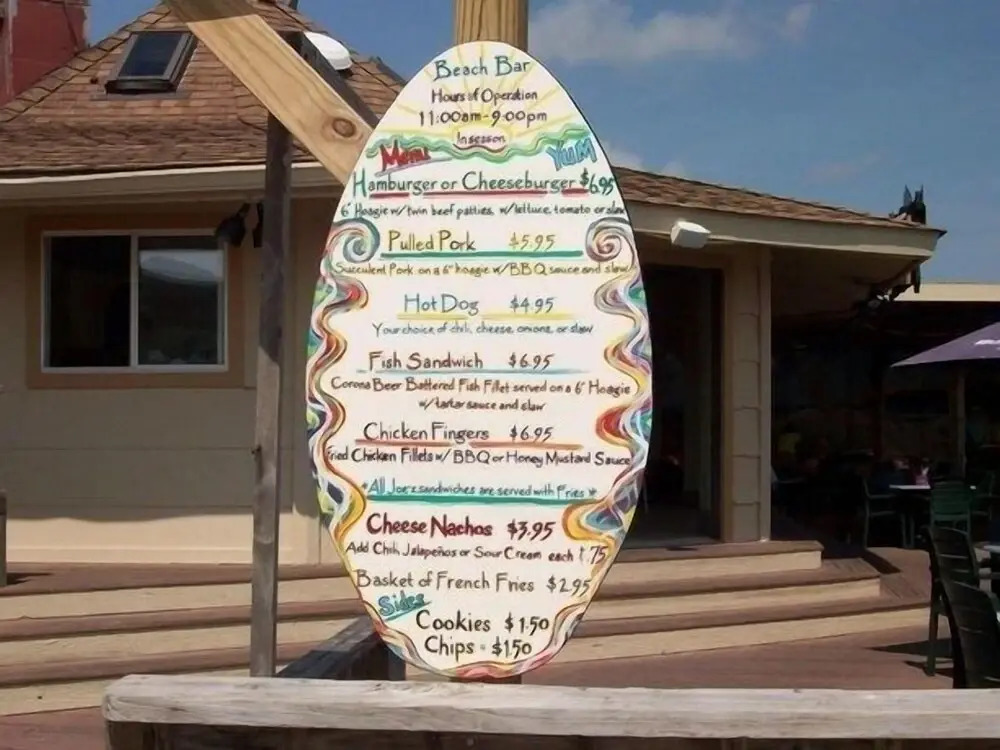 Beach Bar
Hours of Operation
11:00am-9:00pm
In season
Menu YUM
Hamburger or Cheeseburger $6.95
6" Hoagie w/ twin beef patties, w/lettuce, tomato or slaw
Pulled Pork $5.95
Succulent Pork on a 6" hoagie w/BBQ sauce and slaw
Hot Dog $4.95
Your choice of chili, cheese, onions, or slaw
Fish Sandwich $6.95
Corona Beer Battered Fish Fillet served on a 6" Hoagie
w/tartar sauce and slaw
Chicken Fingers $6.95
Fried Chicken Fillets w/ BBQ or Honey Mustard Sauce
*All Joe's sandwiches are served with Fries*
Cheese Nachos $3.95
Add Chili, Jalapeños or Sour Cream each .75
Basket of French Fries $2.95
Sides
Cookies $1.50
Chips - $1.50